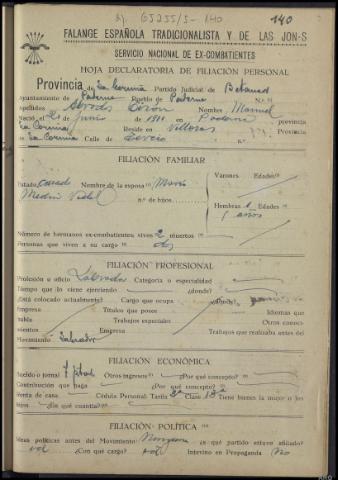 A) 65255/5-140
140
FALANGE ESPAÑOLA TRADICIONALISTA Y DE LAS JON-S
SERVICIO NACIONAL DE EX-COMBATIENTES
HOJA DECLARATORIA DE FILIACIÓN PERSONAL
Provincia de La Coruña Partido Judicial de Betanzos
Ayuntamiento de Paderne Pueblo de Paderne N.º
Apellidos Nombre Manuel
Nació el de Junio de 1911 en Paderne provincia
La Coruña Reside en Villozas
La Coruña Calle de
FILIACIÓN FAMILIAR
Estado casado Nombre de la esposa María
Vidal n.º de hijos
Varones Edades
Hembras 1 Edades
años
Número de hermanos ex-combatientes, vivos 2 muertos
Personas que viven a su cargo dos
FILIACIÓN PROFESIONAL
Profesión u oficio Labrador Categoría o especialidad
Tiempo que lo viene ejerciendo ¿donde?
¿Está colocado actualmente? Cargo que ocupa ¿Dónde?
Empresa Títulos que posee Idiomas que
habla Trabajos especiales Otros conoci-
mientos Empresa Trabajos que realizaba antes del
Movimiento Labrador
FILIACIÓN ECONÓMICA
Sueldo o jornal Otros ingresos ¿Por qué concepto?
Contribución que paga ¿Por qué concepto?
Renta de casa Cédula Personal Tarifa 3ª Clase 13ª Tiene bienes la mujer o los
hijos ¿En qué cuantía?
FILIACIÓN POLÍTICA
Ideas políticas antes del Movimiento Ninguna ¿a qué partido estuvo afiliado?
¿Con qué cargo? Intervino en Propaganda No